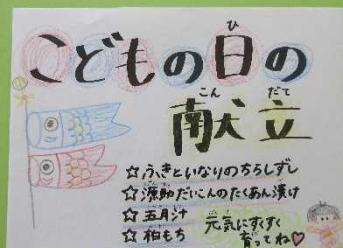 こどもの日の
献立
☆ふきといなりのちらしずし
☆源助だいこんのたくあん漬け
☆五月汁
☆柏もち
元気にすくすく
育ってね♡